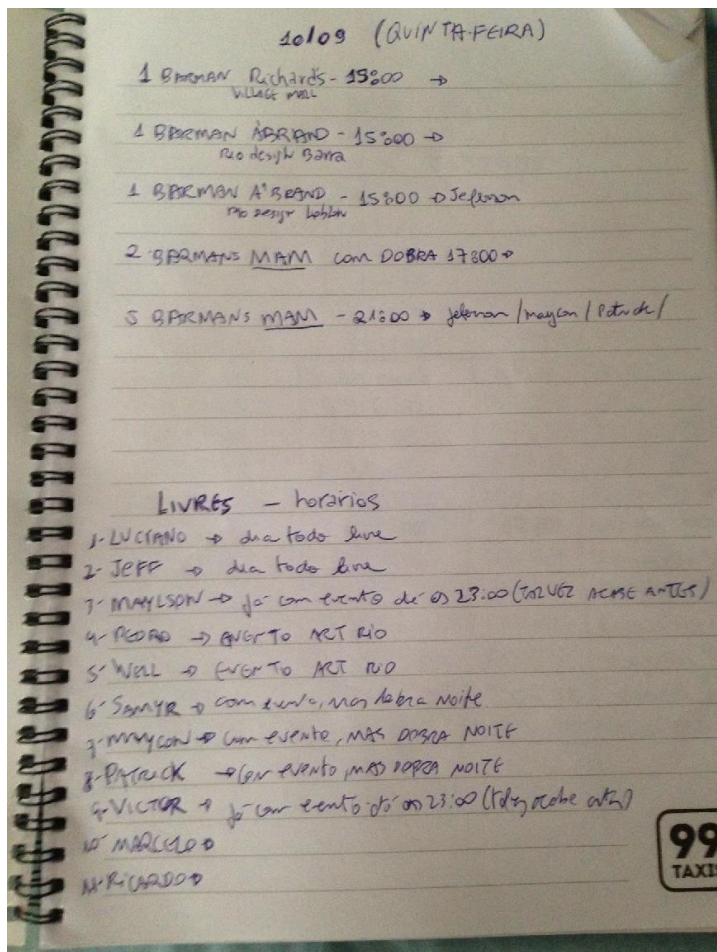 10/09 (QUINTA-FEIRA)
1 BARMAN Richards - 15:00 →
VILLAGE MALL
1 BARMAN ÀBRAND - 15:00 →
Rio design Barra
1 BARMAN A'BRAND - 15:00 → Jeferson
Rio design Leblon
2 BARMANS MAM com DOBRA 17:00 →
5 BARMANS MAM - 21:00 → Jeferson / maycon / Patrick /
LIVRES - horários
1- LUCIANO → dia todo livre
2- JEFF → dia todo livre
3- MAYLSON → já com evento até as 23:00 (TALVEZ ACABE ANTES)
4- PEDRO → EVENTO ART RIO
5- WELL → EVENTO ART RIO
6- SAMYR → com evento, mas dobra noite
7- MAYCON → com evento, MAS DOBRA NOITE
8- PATRICK → com evento, MAS DOBRA NOITE
9- VICTOR → já com evento até as 23:00 (talvez acabe antes)
10- MARCELO →
11- RICARDO →
99
TAXIS